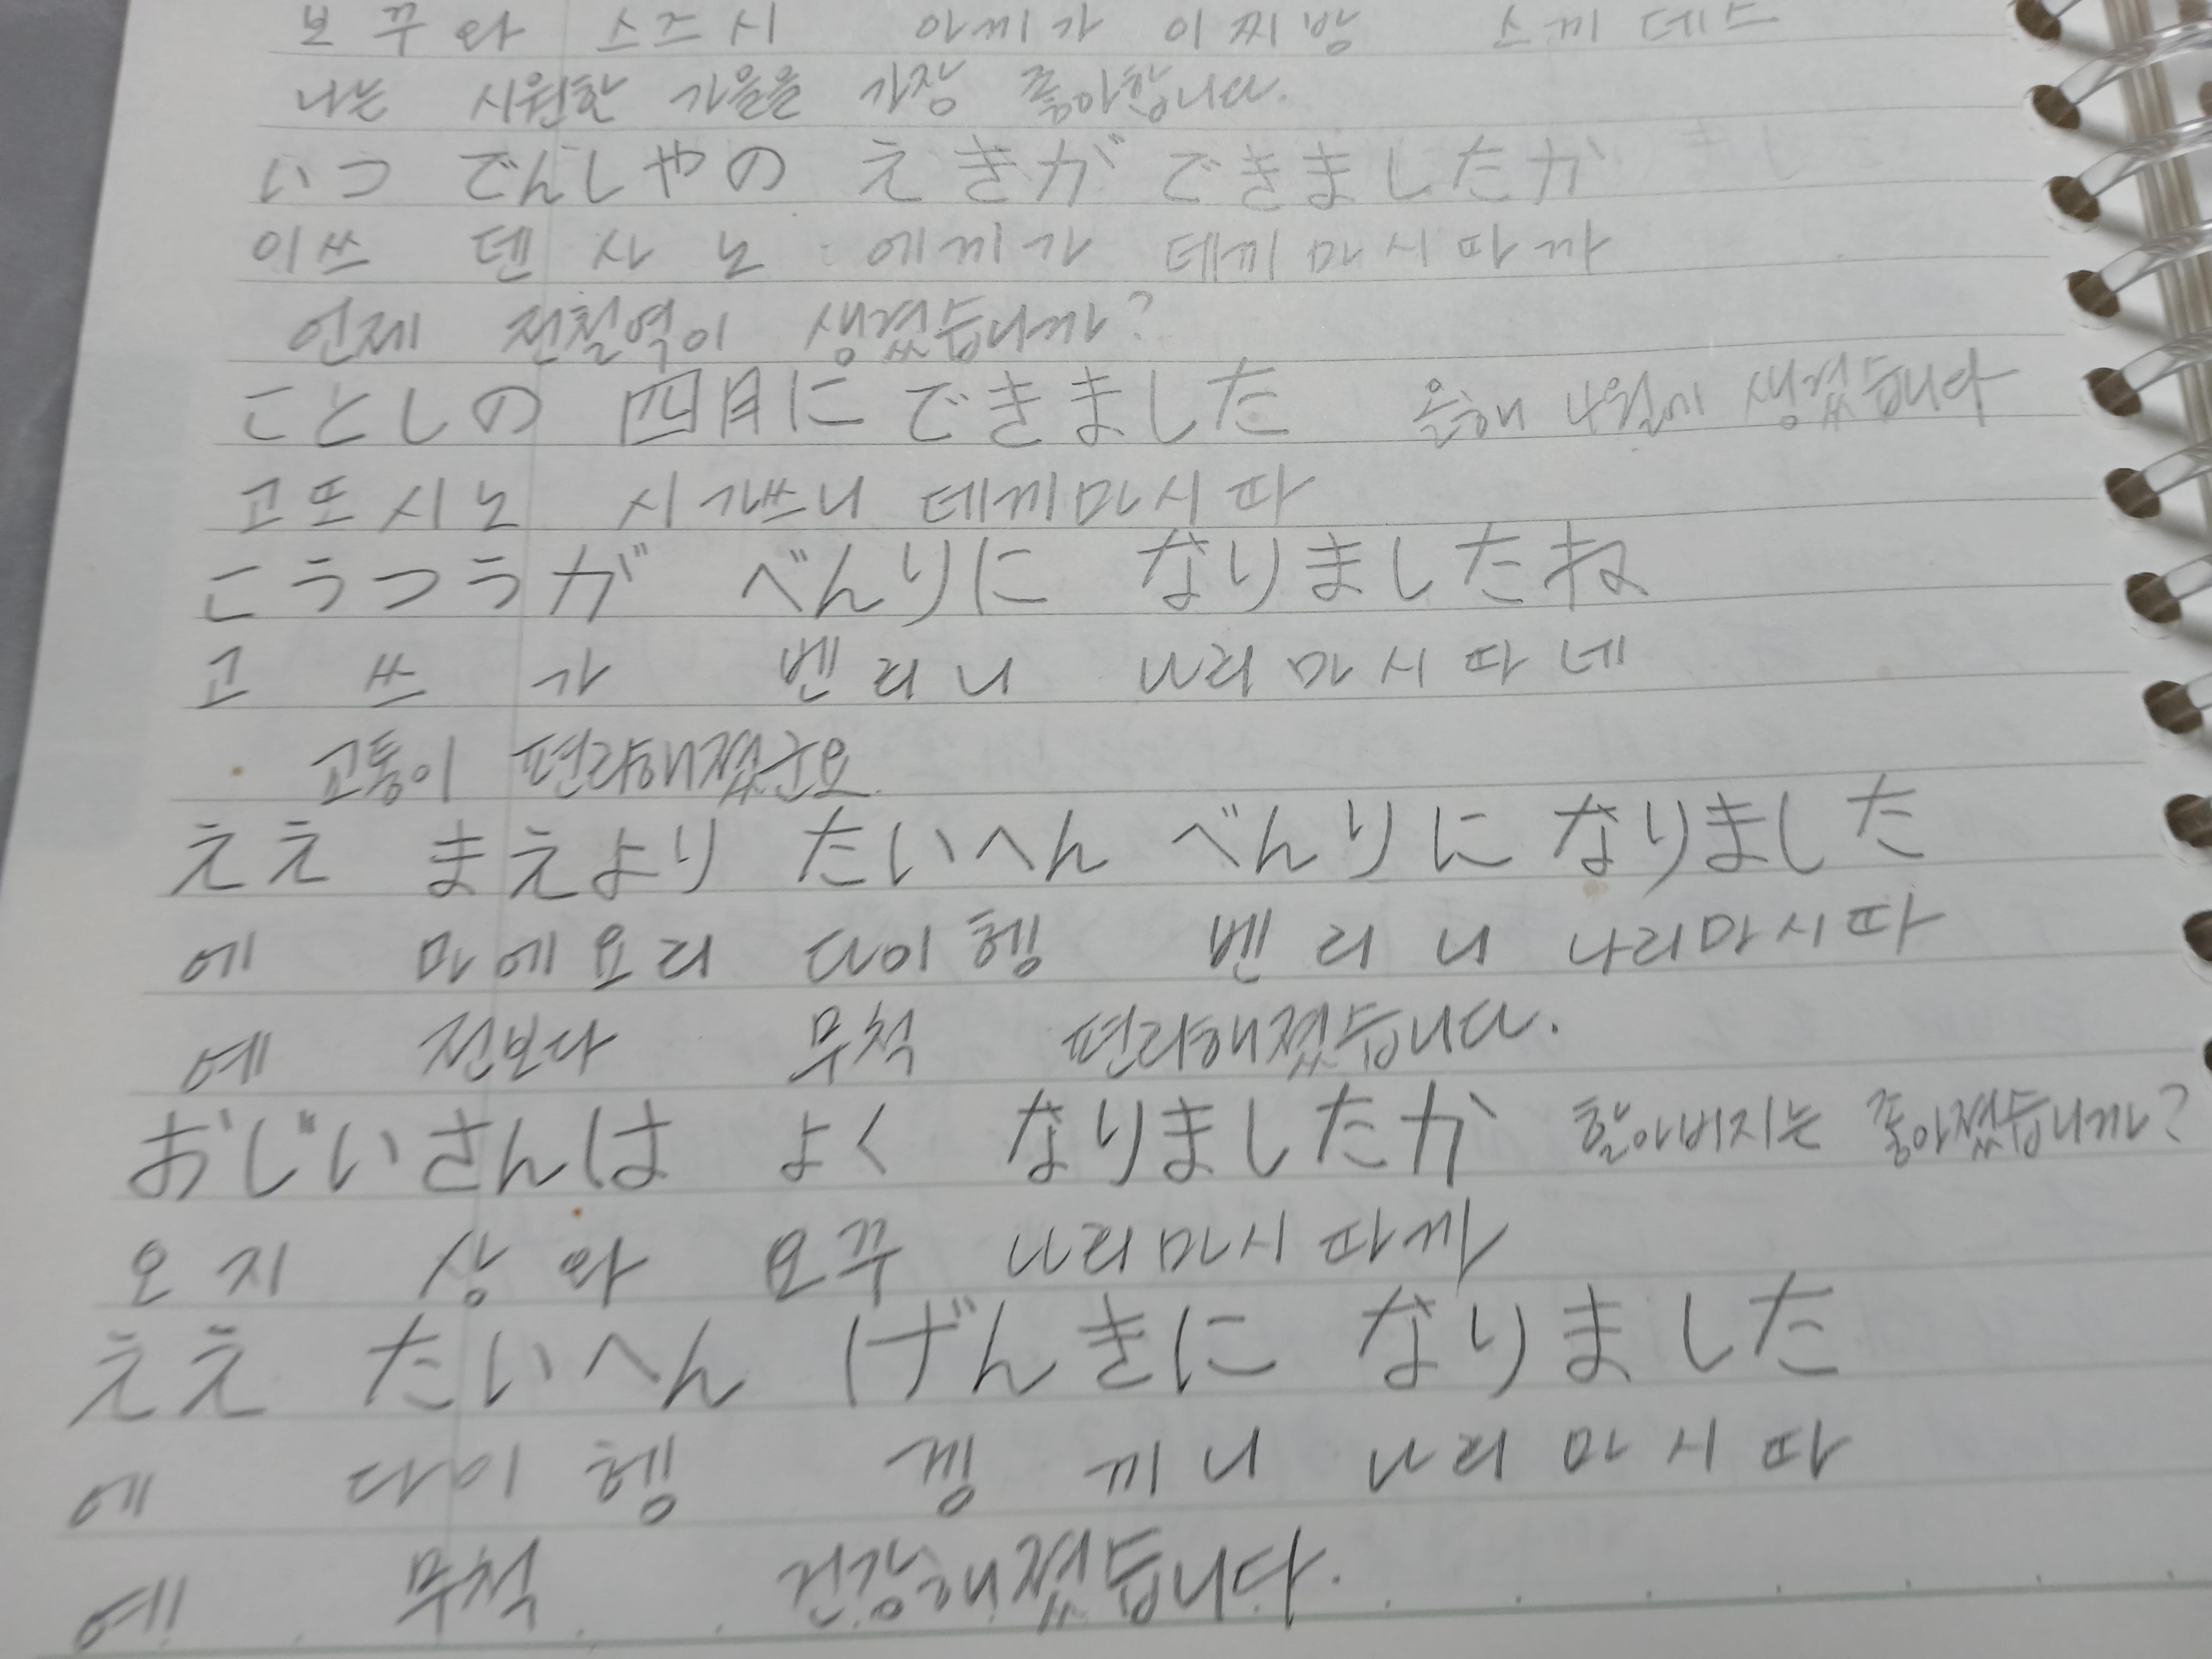 보꾸와 스즈시 아끼가 이찌방 스끼데스
나는 시원한 가을을 가장 좋아합니다.
いつ でんしやの えきが できましたか
이쓰 덴샤노 에끼가 데끼마시따까
언제 전철역이 생겼습니까?
ことしの 四月に できました 올해 4월에 생겼습니다
고또시노 시가쓰니 데끼마시따
こうつうが べんりに なりましたね
고쓰가 벤리니 나리마시따네
교통이 편리해졌군요
ええ まえより たいへん べんりに なりました
에 마에요리 다이헹 벤리니 나리마시따
예 전보다 무척 편리해졌습니다.
おじいさんは よく なりましたか 할아버지는 좋아졌습니까?
오지상와 요꾸 나리마시따까
ええ たいへん げんきに なりました
에 다이헹 겡끼니 나리마시따
예! 무척 건강해졌습니다.